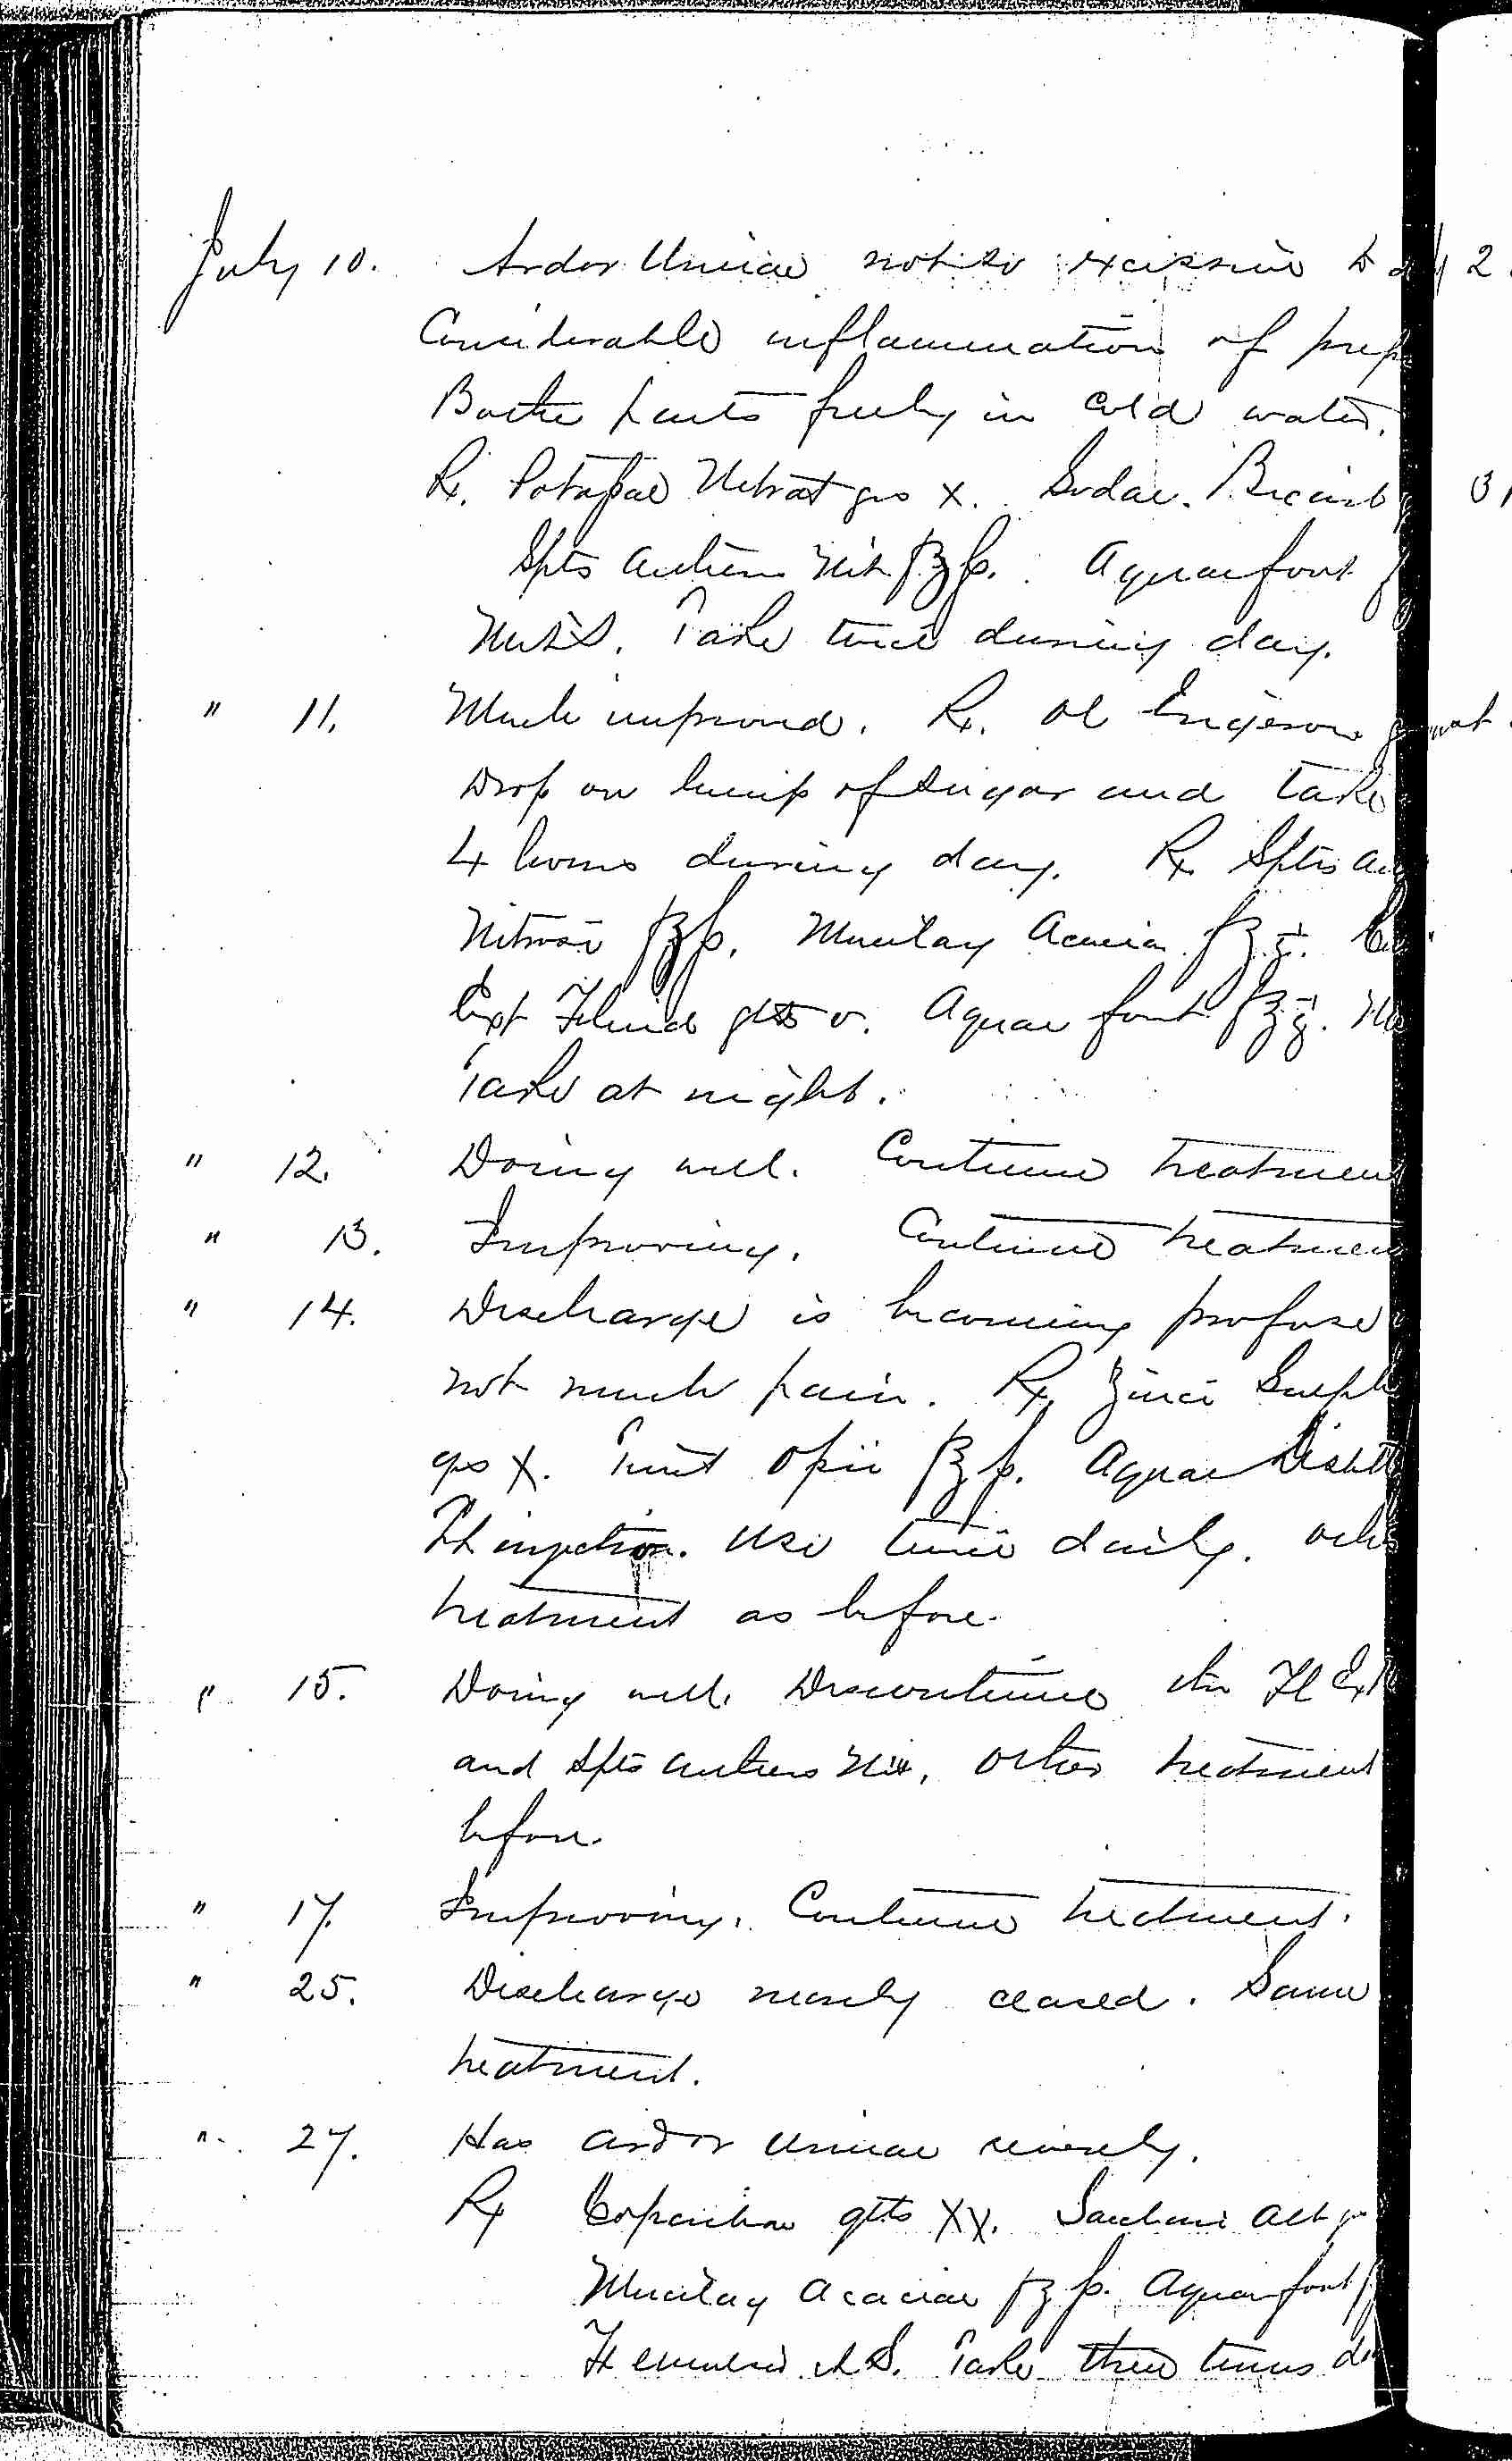 July 10. Ardor Urinae not so excessive
Considerable inflammation of
Bathe parts freely in cold water.
Rx. Potassae Nitrat grs x. Sodae. Bicarb
Spts Aetheris Nit f℥ſs. Aquae font
M. S. Take twice during day.
" 11. Much improved. Rx. Ol Erigeron
Drop on lump of sugar and take
4 hours during day. Rx Spts
Nitrosi fʒſs. Mucilag Acaciae f℥j.
Ext Fluid gtts v. Aquae font f℥j.
Take at night.
" 12. Doing well. Continue treatment
" 13. Improving. Continue treatment
" 14. Discharge is becoming profuse
not much pain. Rx. Zinci Sulph
grs x. Tinct Opii f℥ſs. Aquae Distill
Ft injection. Use twice daily. other
treatment as before.
" 15. Doing well. Discontinue the Fl Ext
and Spts Aetheris Nit, other treatment
before.
" 17. Improving. Continue treatment.
" 25. Discharge nearly ceased. Same
treatment.
" 27. Has ardor urinae severely.
Rx Copaibae gtts XX. Sacchari Alb
Mucilag Acaciae fʒſs. Aquae font
Ft emulsio. S. Take three times